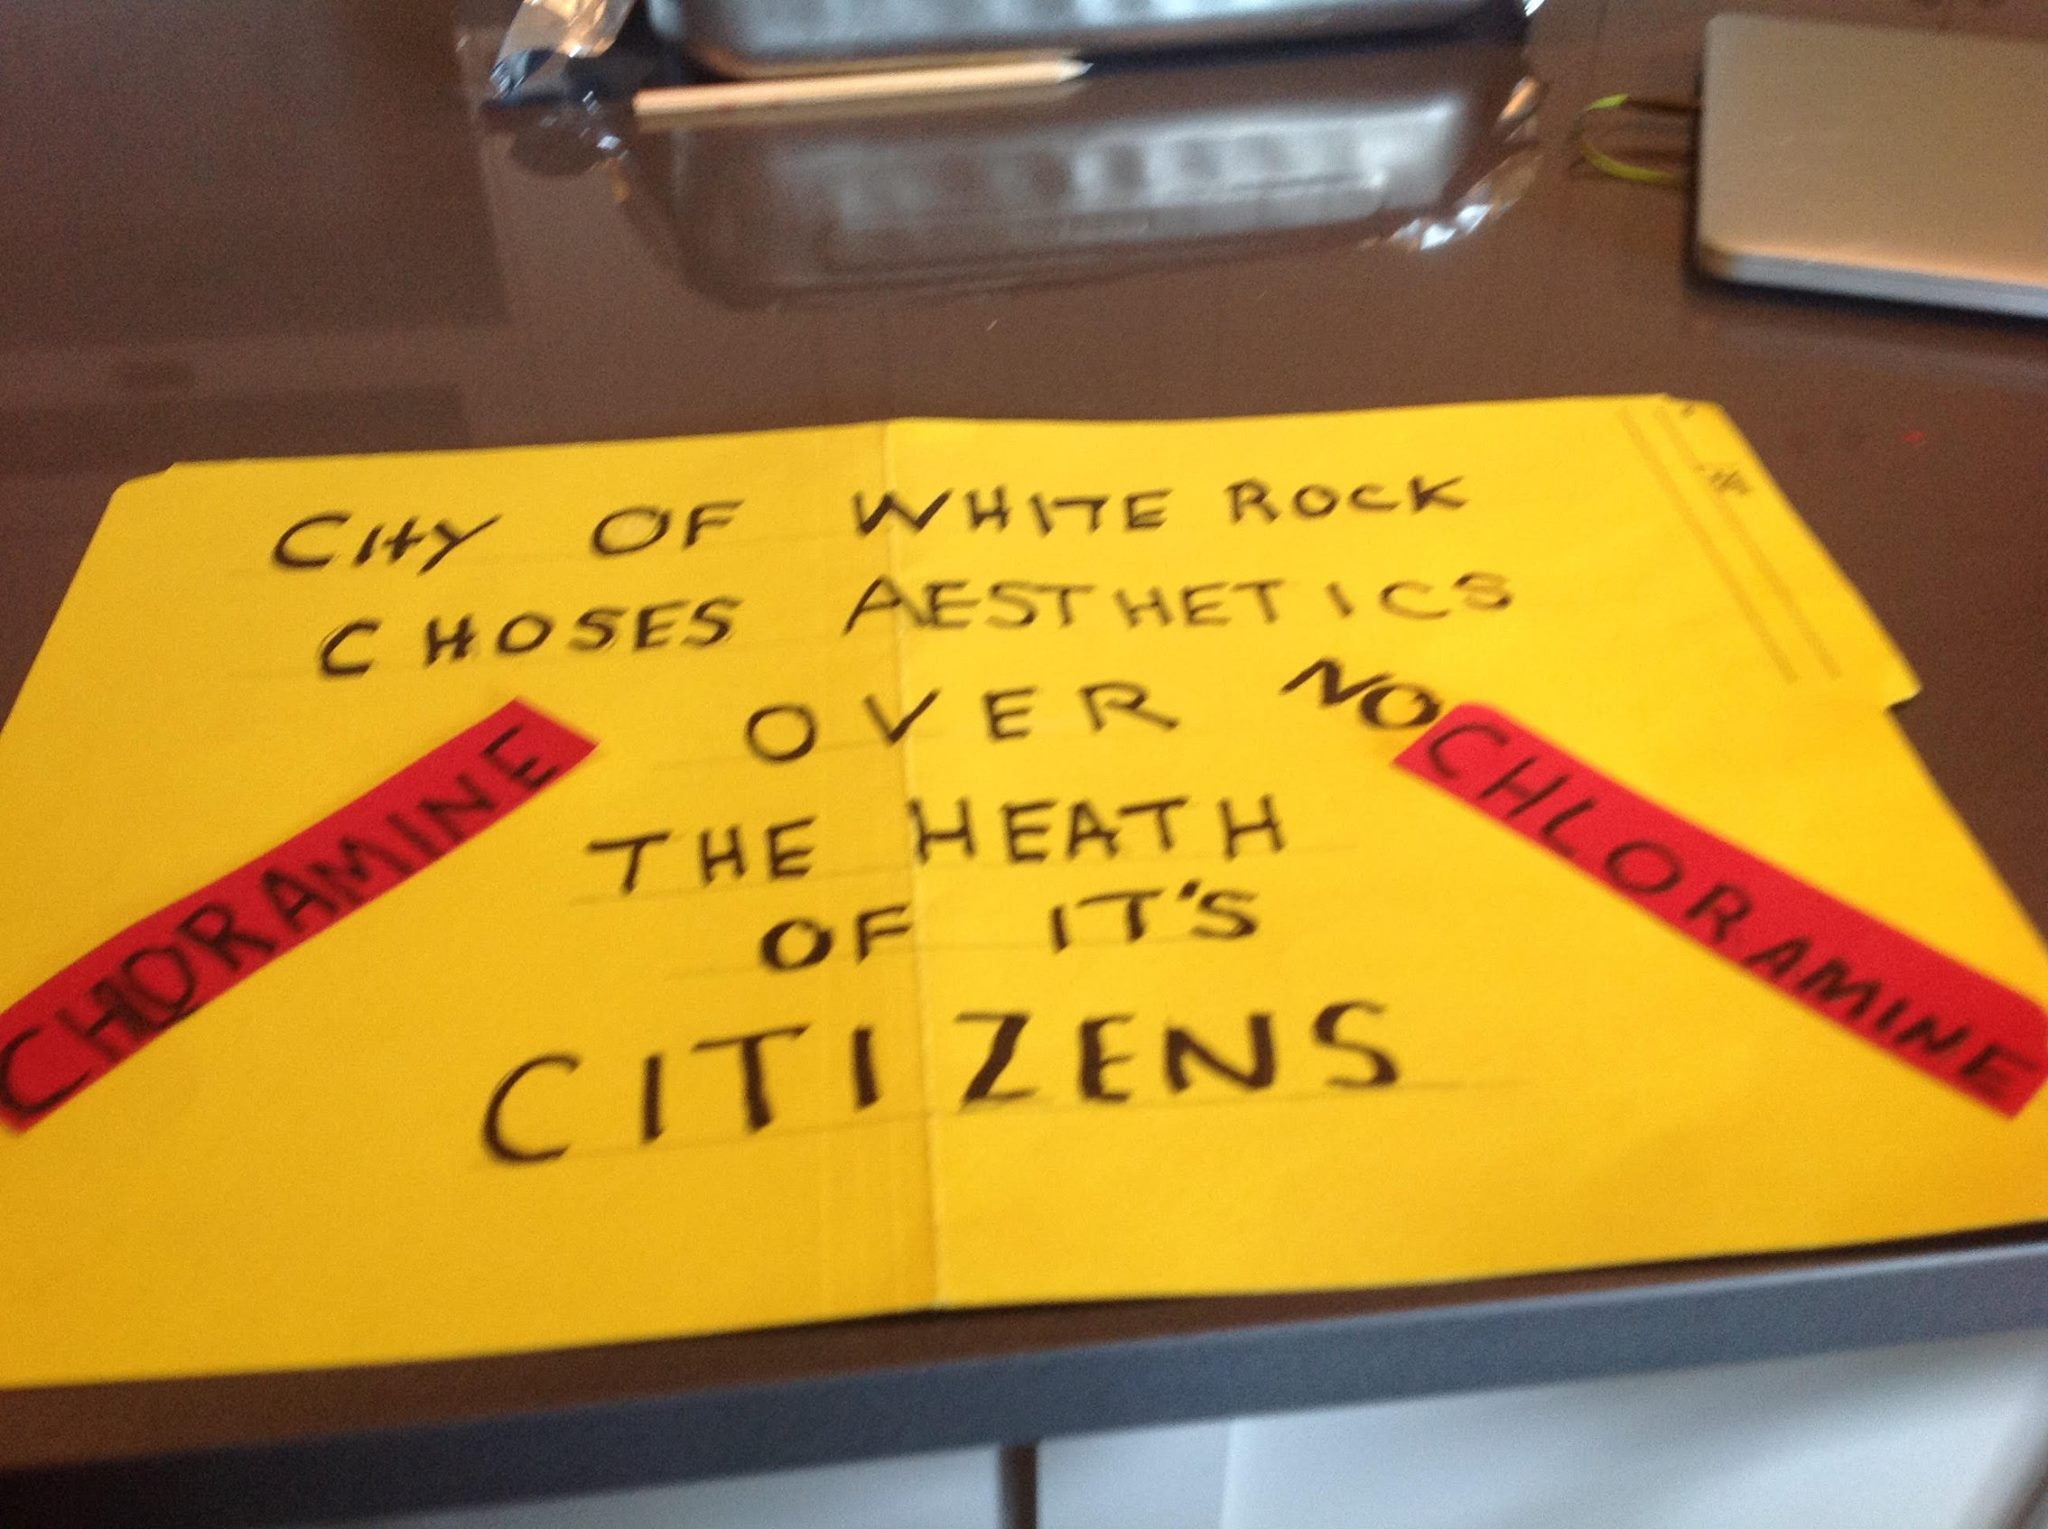 City OF WHITE ROCK
CHOSES AESTHETICS
OVER
NO CHLORAMINE
CHORAMINE
THE HEATH
OF IT'S
CITIZENS